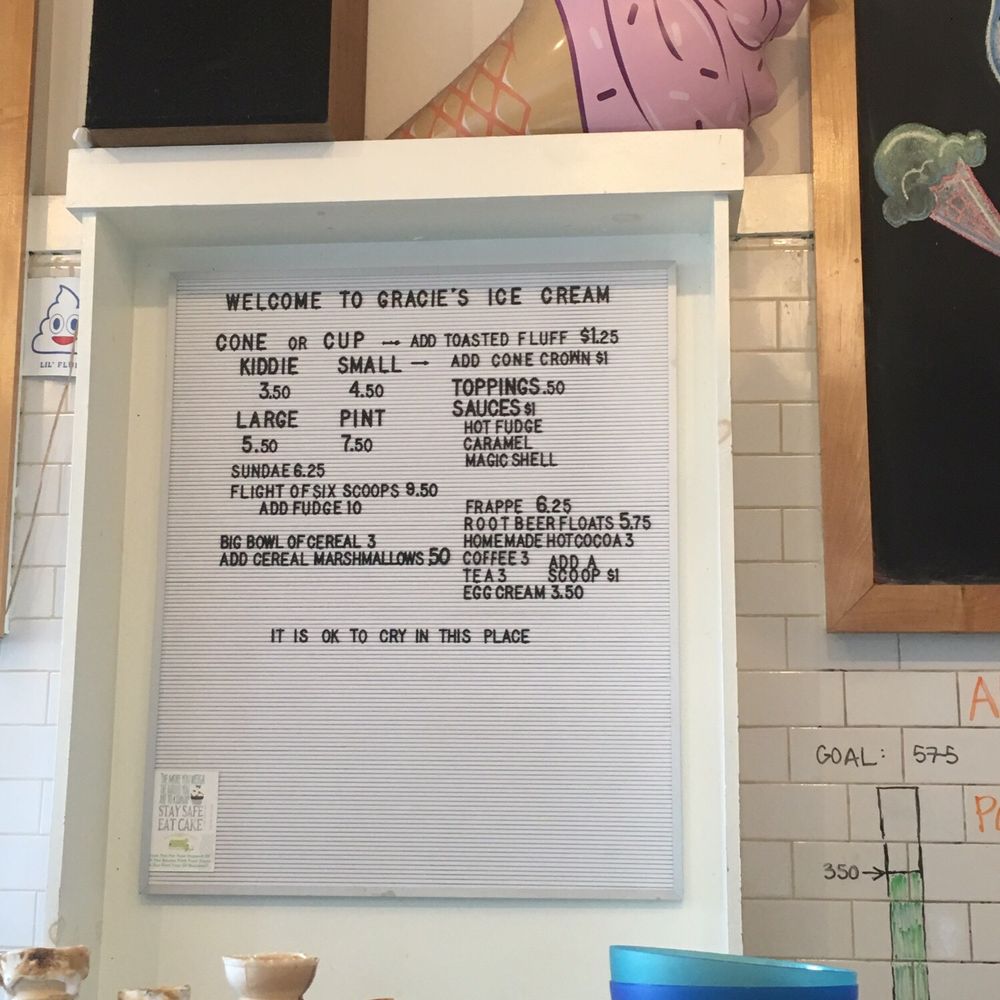 WELCOME TO GRACIE'S ICE CREAM
CONE OR CUP → ADD TOASTED FLUFF $1.25
KIDDIE SMALL → ADD CONE CROWN $1
3.50 4.50
TOPPINGS .50
LARGE PINT
5.50 7.50
SAUCES $1
HOT FUDGE
CARAMEL
MAGIC SHELL
SUNDAE 6.25
FLIGHT OF SIX SCOOPS 9.50
ADD FUDGE 10
BIG BOWL OF CEREAL 3
ADD CEREAL MARSHMALLOWS .50
FRAPPE 6.25
ROOT BEER FLOATS 5.75
HOMEMADE HOT COCOA 3
COFFEE 3
TEA 3
ADD A
SCOOP $1
EGG CREAM 3.50
IT IS OK TO CRY IN THIS PLACE
STAY SAFE
EAT CAKE
LIL' FLU
GOAL: 575
350→